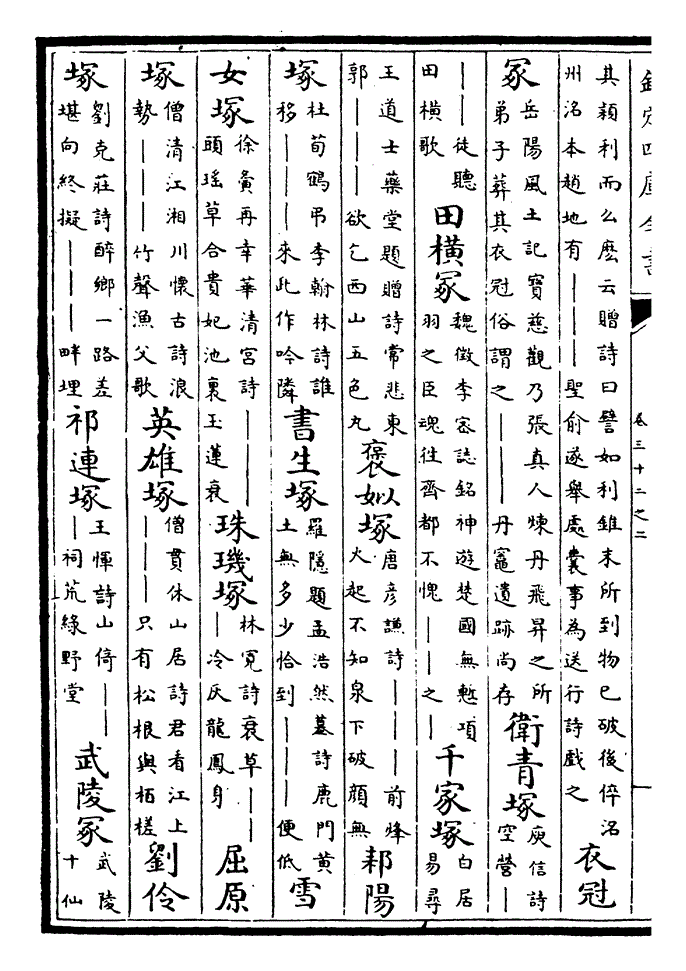 卷三十二之二
其穎利而么麽云贈詩曰譬如利錐末所到物已破後倅洺
州洺本趙地有｜｜｜聖俞遂舉處囊事為送行詩戲之
衣冠
冢
岳陽風土記寶慈觀乃張真人煉丹飛昇之所
弟子葬其衣冠俗謂之｜｜｜丹竈遺跡尚存
衛青塚
庾信詩
空營｜
｜｜徒聽
田橫歌
田橫冢
魏徵李密誌銘神遊楚國無慙項
羽之臣魂往齊都不愧｜｜之｜
千家塚
白居
易尋
王道士藥堂題贈詩常悲東
郭｜｜｜欲乞西山五色丸
褒姒塚
唐彥謙詩｜｜｜前烽
火起不知泉下破顏無
耒陽
塚
杜荀鶴弔李翰林詩誰
移｜｜｜來此作吟隣
書生塚
羅隱題孟浩然墓詩鹿門黃
土無多少恰到｜｜｜便低
雪
女塚
徐夤再幸華清宮詩｜｜｜
頭瑤草合貴妃池裏玉蓮衰
珠璣塚
林寬詩衰草｜｜
｜冷灰龍鳳身
屈原
塚
僧清江湘川懷古詩浪
勢｜｜｜竹聲漁父歌
英雄塚
僧貫休山居詩君看江上
｜｜｜只有松根與栢槎
劉伶
塚
劉克莊詩醉鄉一路差
堪向終擬｜｜｜畔埋
祁連塚
王惲詩山倚｜｜
｜祠荒綠野堂
武陵冢
武陵
十仙